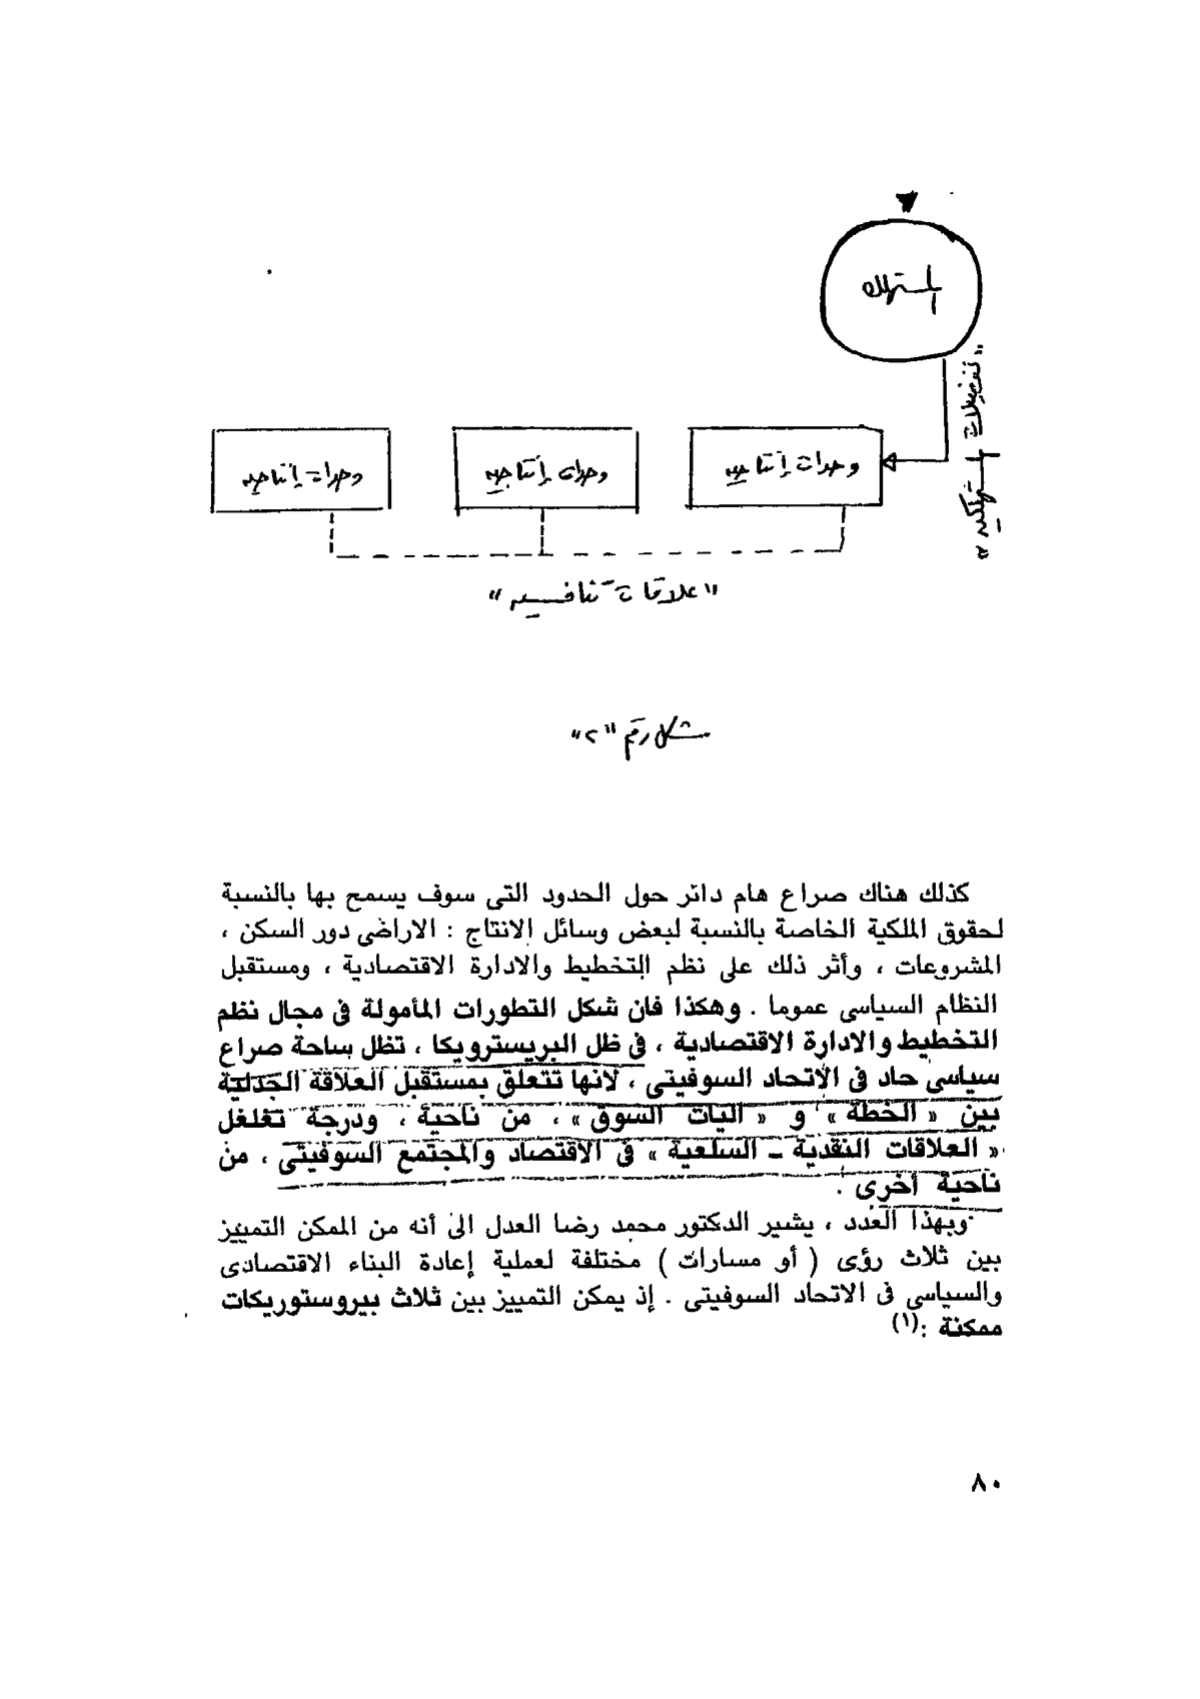 المستهلك
"تفضيلات استهلاكية"
وحدات إنتاجيه
وحدات إنتاجيه
وحدات إنتاجيه
"علاقات تنافسيه"
شكل رقم "٢"
كذلك هناك صراع هام دائر حول الحدود التى سوف يسمح بها بالنسبة
لحقوق الملكية الخاصة بالنسبة لبعض وسائل الانتاج : الاراضى دور السكن ،
المشروعات ، وأثر ذلك على نظم التخطيط والادارة الاقتصادية ، ومستقبل
النظام السياسى عموما . وهكذا فان شكل التطورات المأمولة فى مجال نظم
التخطيط والادارة الاقتصادية ، فى ظل البريسترويكا ، تظل ساحة صراع
سياسى حاد فى الاتحاد السوفيتى ، لانها تتعلق بمستقبل العلاقة الجدلية
بين « الخطة » و « اليات السوق » ، من ناحية ، ودرجة تغلغل
« العلاقات النقدية – السلعية » فى الاقتصاد والمجتمع السوفيتى ، من
ناحية أخرى .
وبهذا العدد ، يشير الدكتور محمد رضا العدل الى أنه من الممكن التمييز
بين ثلاث رؤى ( أو مسارات ) مختلفة لعملية إعادة البناء الاقتصادى
والسياسى فى الاتحاد السوفيتى . إذ يمكن التمييز بين ثلاث بيروستوريكات
ممكنة :(١)
٨٠